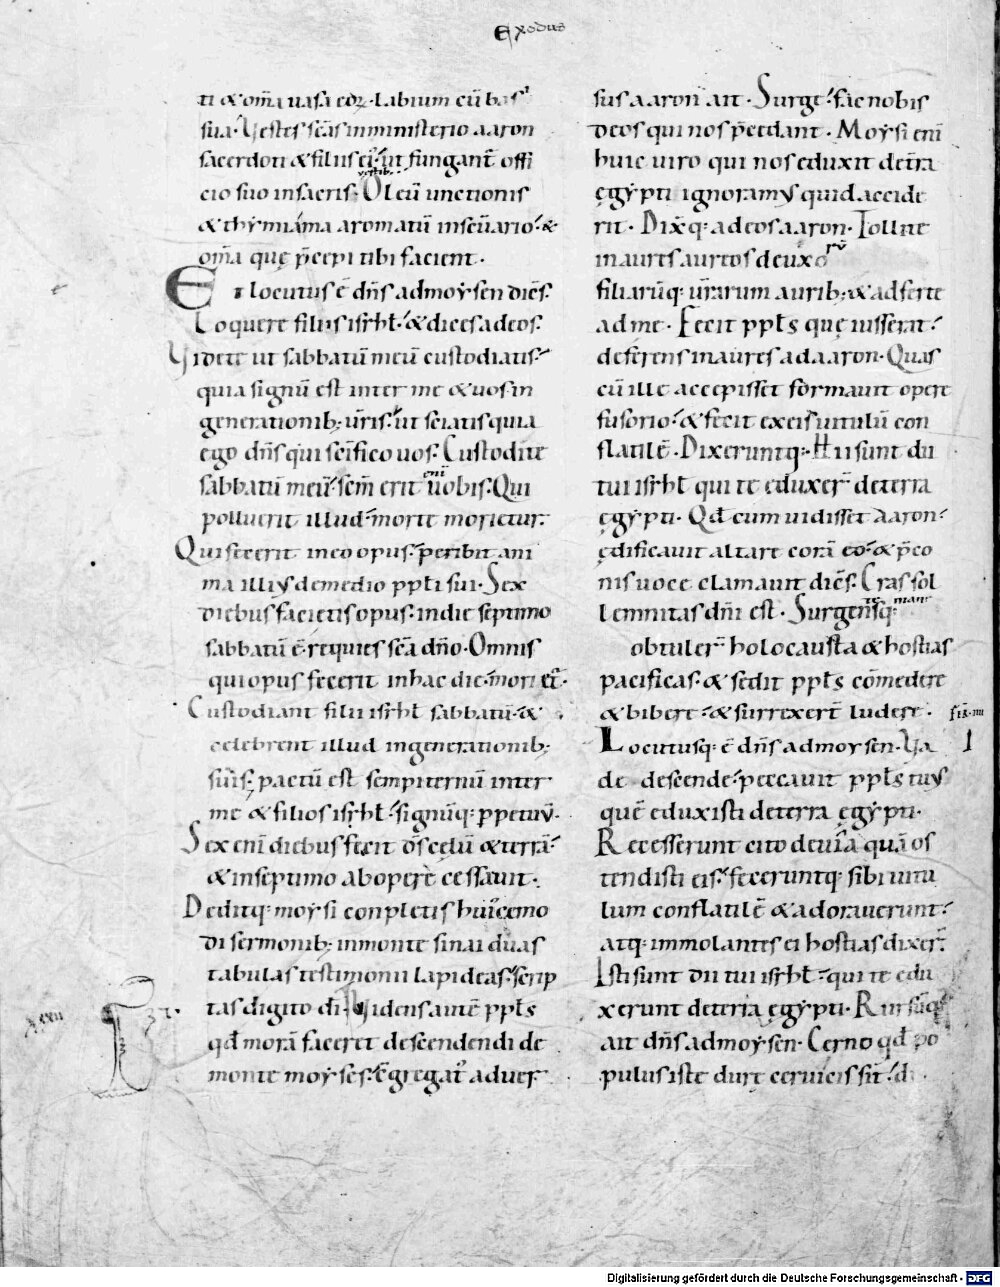 Exodus
ti & om̅a uasa eoꝝ· labium cu̅ basi
sua· Uestes sc̅as in ministerio aaron
sacerdoti & filiis ei᾿· ut fungant̅ offi
cio suo in sacris· Oleu̅ unctionis
& thymiama aromatu̅ in sc̅uario· &
om̅a quę p̅cepi tibi facient·
Et locutus e̅ dn̅s ad moysen dice̅s·
Loquere filiis isrhƚ· & dices ad eos·
Uidete ut sabbatu̅ meu̅ custodiatis·
quia signu̅ est inter me & uos· in
generationib; ur̅is· ut sciatis quia
ego dn̅s qui sc̅ifico uos· Custodite
sabbatu̅ meu̅· sc̅m erit eni̅ uobis· Qui
polluerit illud· morte morietur·
Qui fecerit in eo opus· peribit ani
ma illius de medio ppƚi sui· Sex
diebus facietis opus· in die septimo
sabbatu̅ e̅· requies sc̅a dn̅o· Omnis
qui opus fecerit in hac die· moriet̅·
Custodiant filii isrhƚ sabbatu̅· &
celebrent illud in generationib;
suis· pactu̅ est sempiternu̅ inter
me & filios isrhƚ· signu̅q: ppetuu̅·
Sex eni̅ diebus fecit dn̅s cęlu̅ & terra̅·
& in septimo ab opere cessauit·
Deditq: moysi conpletis huicemo
di sermonib; in monte sinai duas
tabulas testimonii lapideas· scrip
xxxii
tas digito di̅· Uidens aute̅ ppƚs
qđ mora̅ faceret descendendi de
monte moyses· c̅gregat᾿ aduer
sus aaron ait· Surge· fac nobis
deos qui nos p̅cedant· Moysi eni̅
huic uiro qui nos eduxit de t̅ra
ęgypti ignoramus quid accide
rit· Dix̅q: ad eos aaron· Tollite
inaures aureas de uxoru̅
filiaru̅q: ur̅arum aurib;· & adferte
ad me· Fecit ppƚs quę iusserat·
deferens inaures ad aaron· Quas
cu̅ ille accepisset formauit opere
fusorio· & fecit ex eis uitulu̅ con
flatile̅· Dixeruntq:· Hii sunt dii
tui isrhƚ qui te eduxer̅ de terra
ęgypti· Qđ cum uidisset aaron·
ędificauit altare cora̅ eo· & p̅co
nis uoce clamauit dice̅s· Cras sol
lemnitas dn̅i est· Surgentesq: mane
obtuler̅ holocausta & hostias
pacificas· & sedit ppƚs com̅edere
& bibere· & surrexer̅t ludere·
Locutusq: e̅ dn̅s ad moysen· Ua
de descende· peccauit ppƚs tuus
que̅ eduxisti de terra ęgypti·
Recesserunt cito de uia qua̅ os
tendisti eis· feceruntq: sibi uitu
lum conflatile̅ & adorauerunt·
atq: immolantes ei hostias dixer̅
Isti sunt dii tui isrhƚ· qui te edu
xerunt de terra ęgypti· Rursu̅q:
ait dn̅s ad moysen· Cerno qđ po
pulus iste durę ceruicis sit·
Digitalisierung gefördert durch die Deutsche Forschungsgemeinschaft - DFG